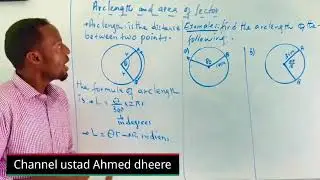 Arclength and area of sector
→Arclength is the distance
between two points.
the formula of arclength
is → L = θ/360 × 2πr
in degrees
→ L = θr → in radians
Examples: find the arclength of the
following:
a)
b)
Channel ustad Ahmed dheere